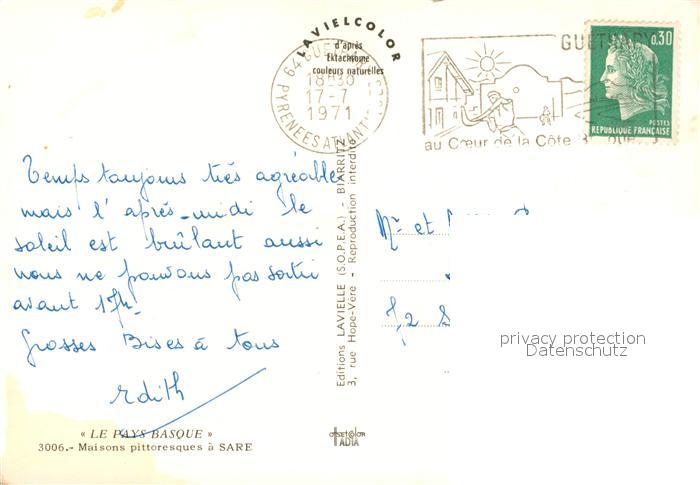 LAVIELCOLOR
d'après
Ektachrome
couleurs naturelles
18H30
17-7
1971
PYRENEES ATLANT
GUETHARY
au Cœur de la Côte
0,30
POSTES
REPUBLIQUE FRANÇAISE
Temps toujours très agréable
mais l'après-midi le
soleil est brûlant aussi
nous ne pouvons pas sortir
avant 17h!
Grosses Bises à tous
Edith
Editions LAVIELLE (S.O.P.E.A.) - BIARRITZ
3, rue Hope-Vère - Reproduction interdite
Mr et
privacy protection
Datenschutz
« LE PAYS BASQUE »
3006.- Maisons pittoresques à SARE
offsetcolor